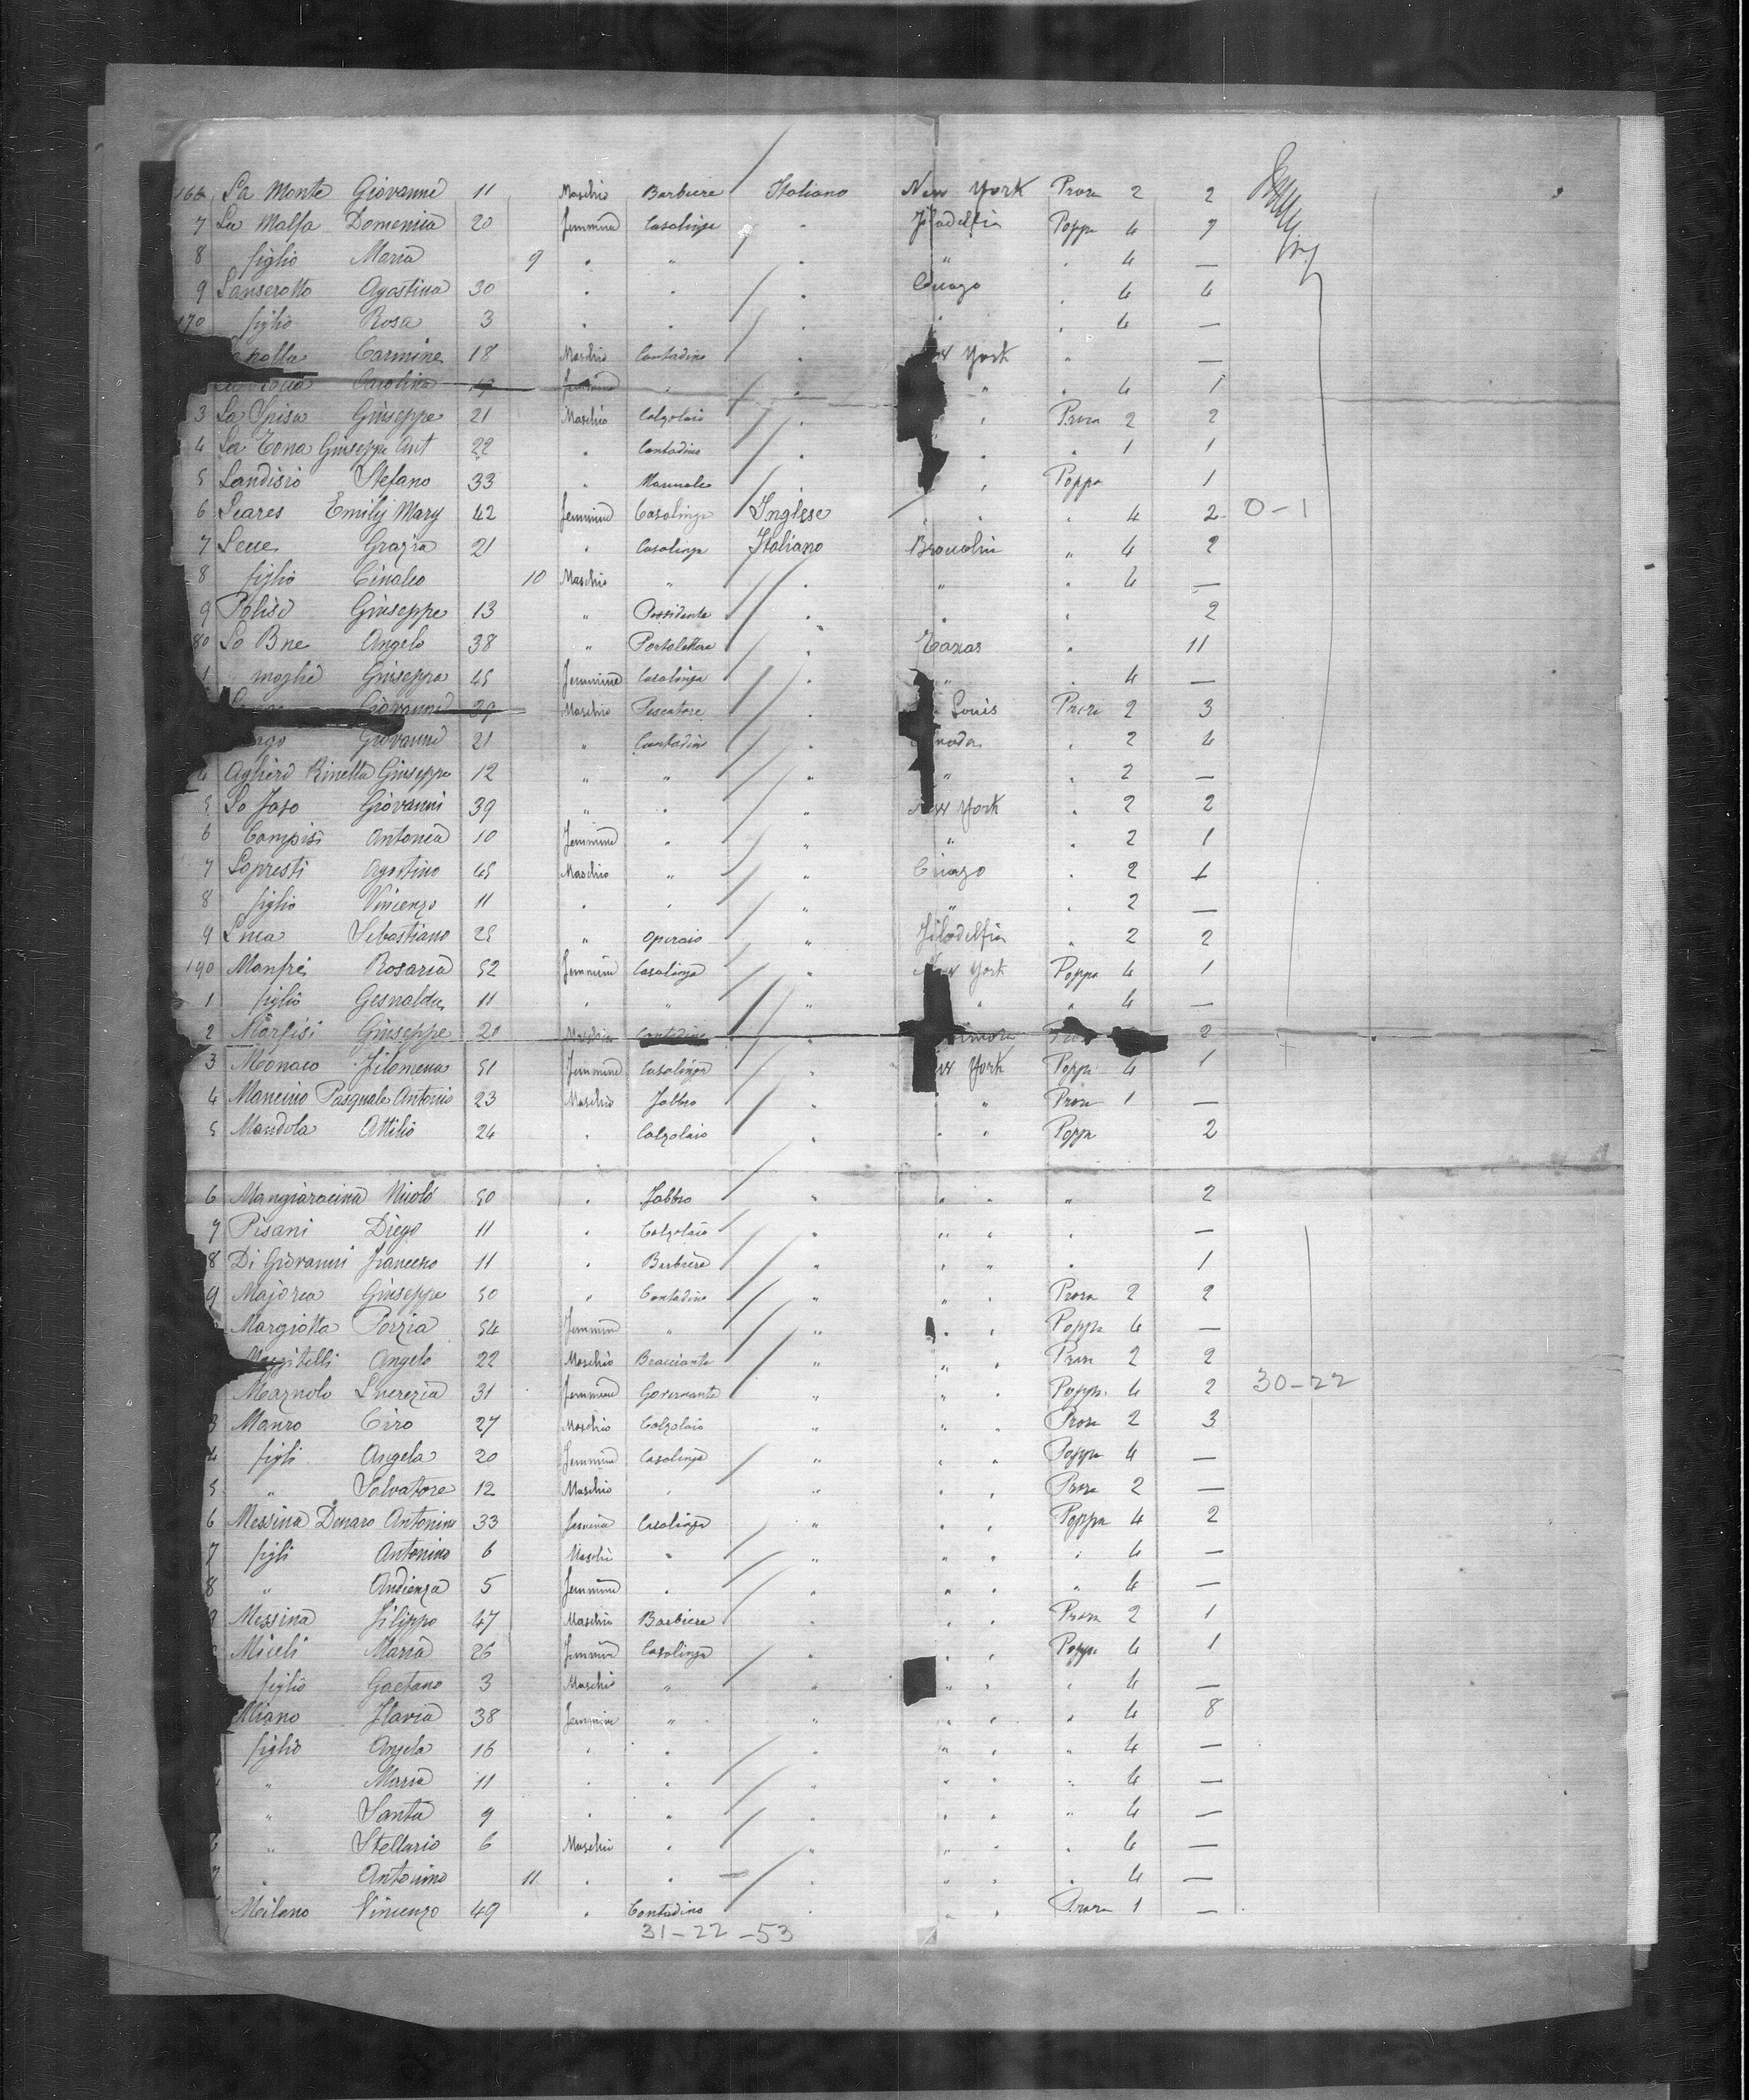 166 La Monte Giovanni 11 Maschio Barbiere Italiano New York Prora 2 2
7 La Malfa Domenica 20 Femmina Casalinga " Filadelfia Poppa 4 7
8 figlio Maria 9 " " " " " 4 —
9 Lanserotto Agostina 30 " " " Cicago " 4 4
170 figlio Rosa 3 " " " " " 4 —
Carmine 18 Maschio Contadino " York " —
Carolina " " " " 4 1
3 La Spisa Giuseppe 21 Maschio Calzolaio " " Prora 2 2
4 La Tona Giuseppe Ant 22 " Contadino " " " 1 1
5 Landisio Stefano 33 " Manuale " " Poppa 1
6 Leares Emily Mary 42 Femmina Casalinga Inglese " " " 4 2 0-1
7 Leue Grazia 21 " Casalinga Italiano Broucolin " 4 2
8 figlio 10 Maschio " " " " 4 —
9 Polisi Giuseppe 13 " Possidente " " " 2
80 Lo Bue Angelo 38 " Portalettere " Texas " 11
1 moglie Giuseppa 45 Femmina Casalinga " " " 4 —
Giovanni 39 Maschio Pescatore " Louis Prora 2 3
Giovanni 21 " Contadin " " 2 4
4 Aglieri Rinella Giuseppe 12 " " " " " 2 —
5 Lo Faso Giovanni 39 " " " New York " 2 2
6 Compisi Antonia 10 Femmina " " " " 2 1
7 Lopresti Agostino 45 Maschio " " Cicago " 2 1
8 figlio Vincenzo 11 " " " " " 2 —
9 Luca Sebastiano 25 " Operaio " Filadelfia " 2 2
190 Manfrè Rosaria 52 Femmina Casalinga " New York Poppa 4 1
1 figlio Gesnalda 11 " " " " " 4 —
2 Marfisi Giuseppe 20 Maschio Contadino " 2
3 Monaco Filomena 51 Femmina Casalinga " York Poppa 4 1
4 Mancino Pasquale Antonio 23 Maschio Fabbro " " " Prora 1 —
5 Mandola Attilio 24 " Calzolaio " " " Poppa 2
6 Mangiaracina Nicolò 50 " Fabbro " " " " 2
7 Pisani Diego 11 " Calzolaio " " " " —
8 Di Giovanni Francesco 11 " Barbiere " " " " 1
9 Majorca Giuseppe 50 " Contadino " " " Prora 2 2
Margiotta Porzia 54 Femmina " " " " Poppa 4 —
Angelo 22 Maschio Bracciante " " " Prora 2 2
Maznolo Lucrezia 31 Femmina Governante " " " Poppa 4 2 30-22
3 Mauro Ciro 27 Maschio Calzolaio " " " Prora 2 3
4 figli Angela 20 Femmina Casalinga " " " Poppa 4 —
5 " Salvatore 12 Maschio " " " " Prora 2 —
6 Messina Denaro Antonina 33 Femmina Casalinga " " " Poppa 4 2
7 figli Antonino 6 Maschi " " " " " 4 —
8 " Audienza 5 Femmina " " " " " 4 —
9 Messina Filippo 47 Maschio Barbiere " " " Prora 2 1
Miceli Maria 26 Femmina Casalinga " " " Poppa 4 1
figlio Gaetano 3 Maschio " " " " " 4 —
Miano Flavia 38 Femmina " " " " " 4 8
figlio Angela 16 " " " " " " 4 —
" Maria 11 " " " " " " 4 —
" Santa 9 " " " " " " 4 —
6 " Stellario 6 Maschio " " " " " 4 —
7 " Antonino 11 " " " " " " 4 —
Milano Vincenzo 49 " Contadino " " " Prora 1 —
31-22-53